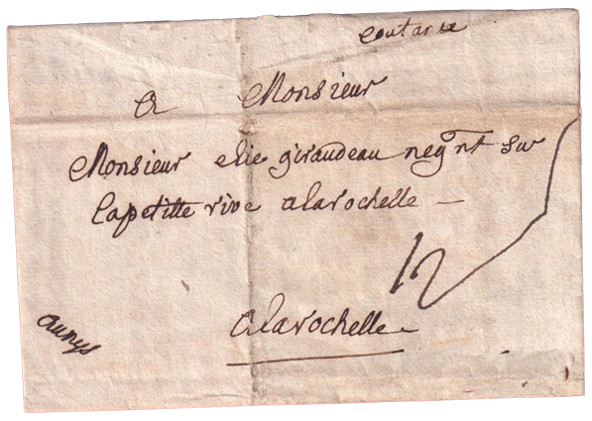 coutance
A Monsieur
Monsieur elie giraudeau negnt sur
lapetitte rive alarochelle –
12
alarochelle –
aunys